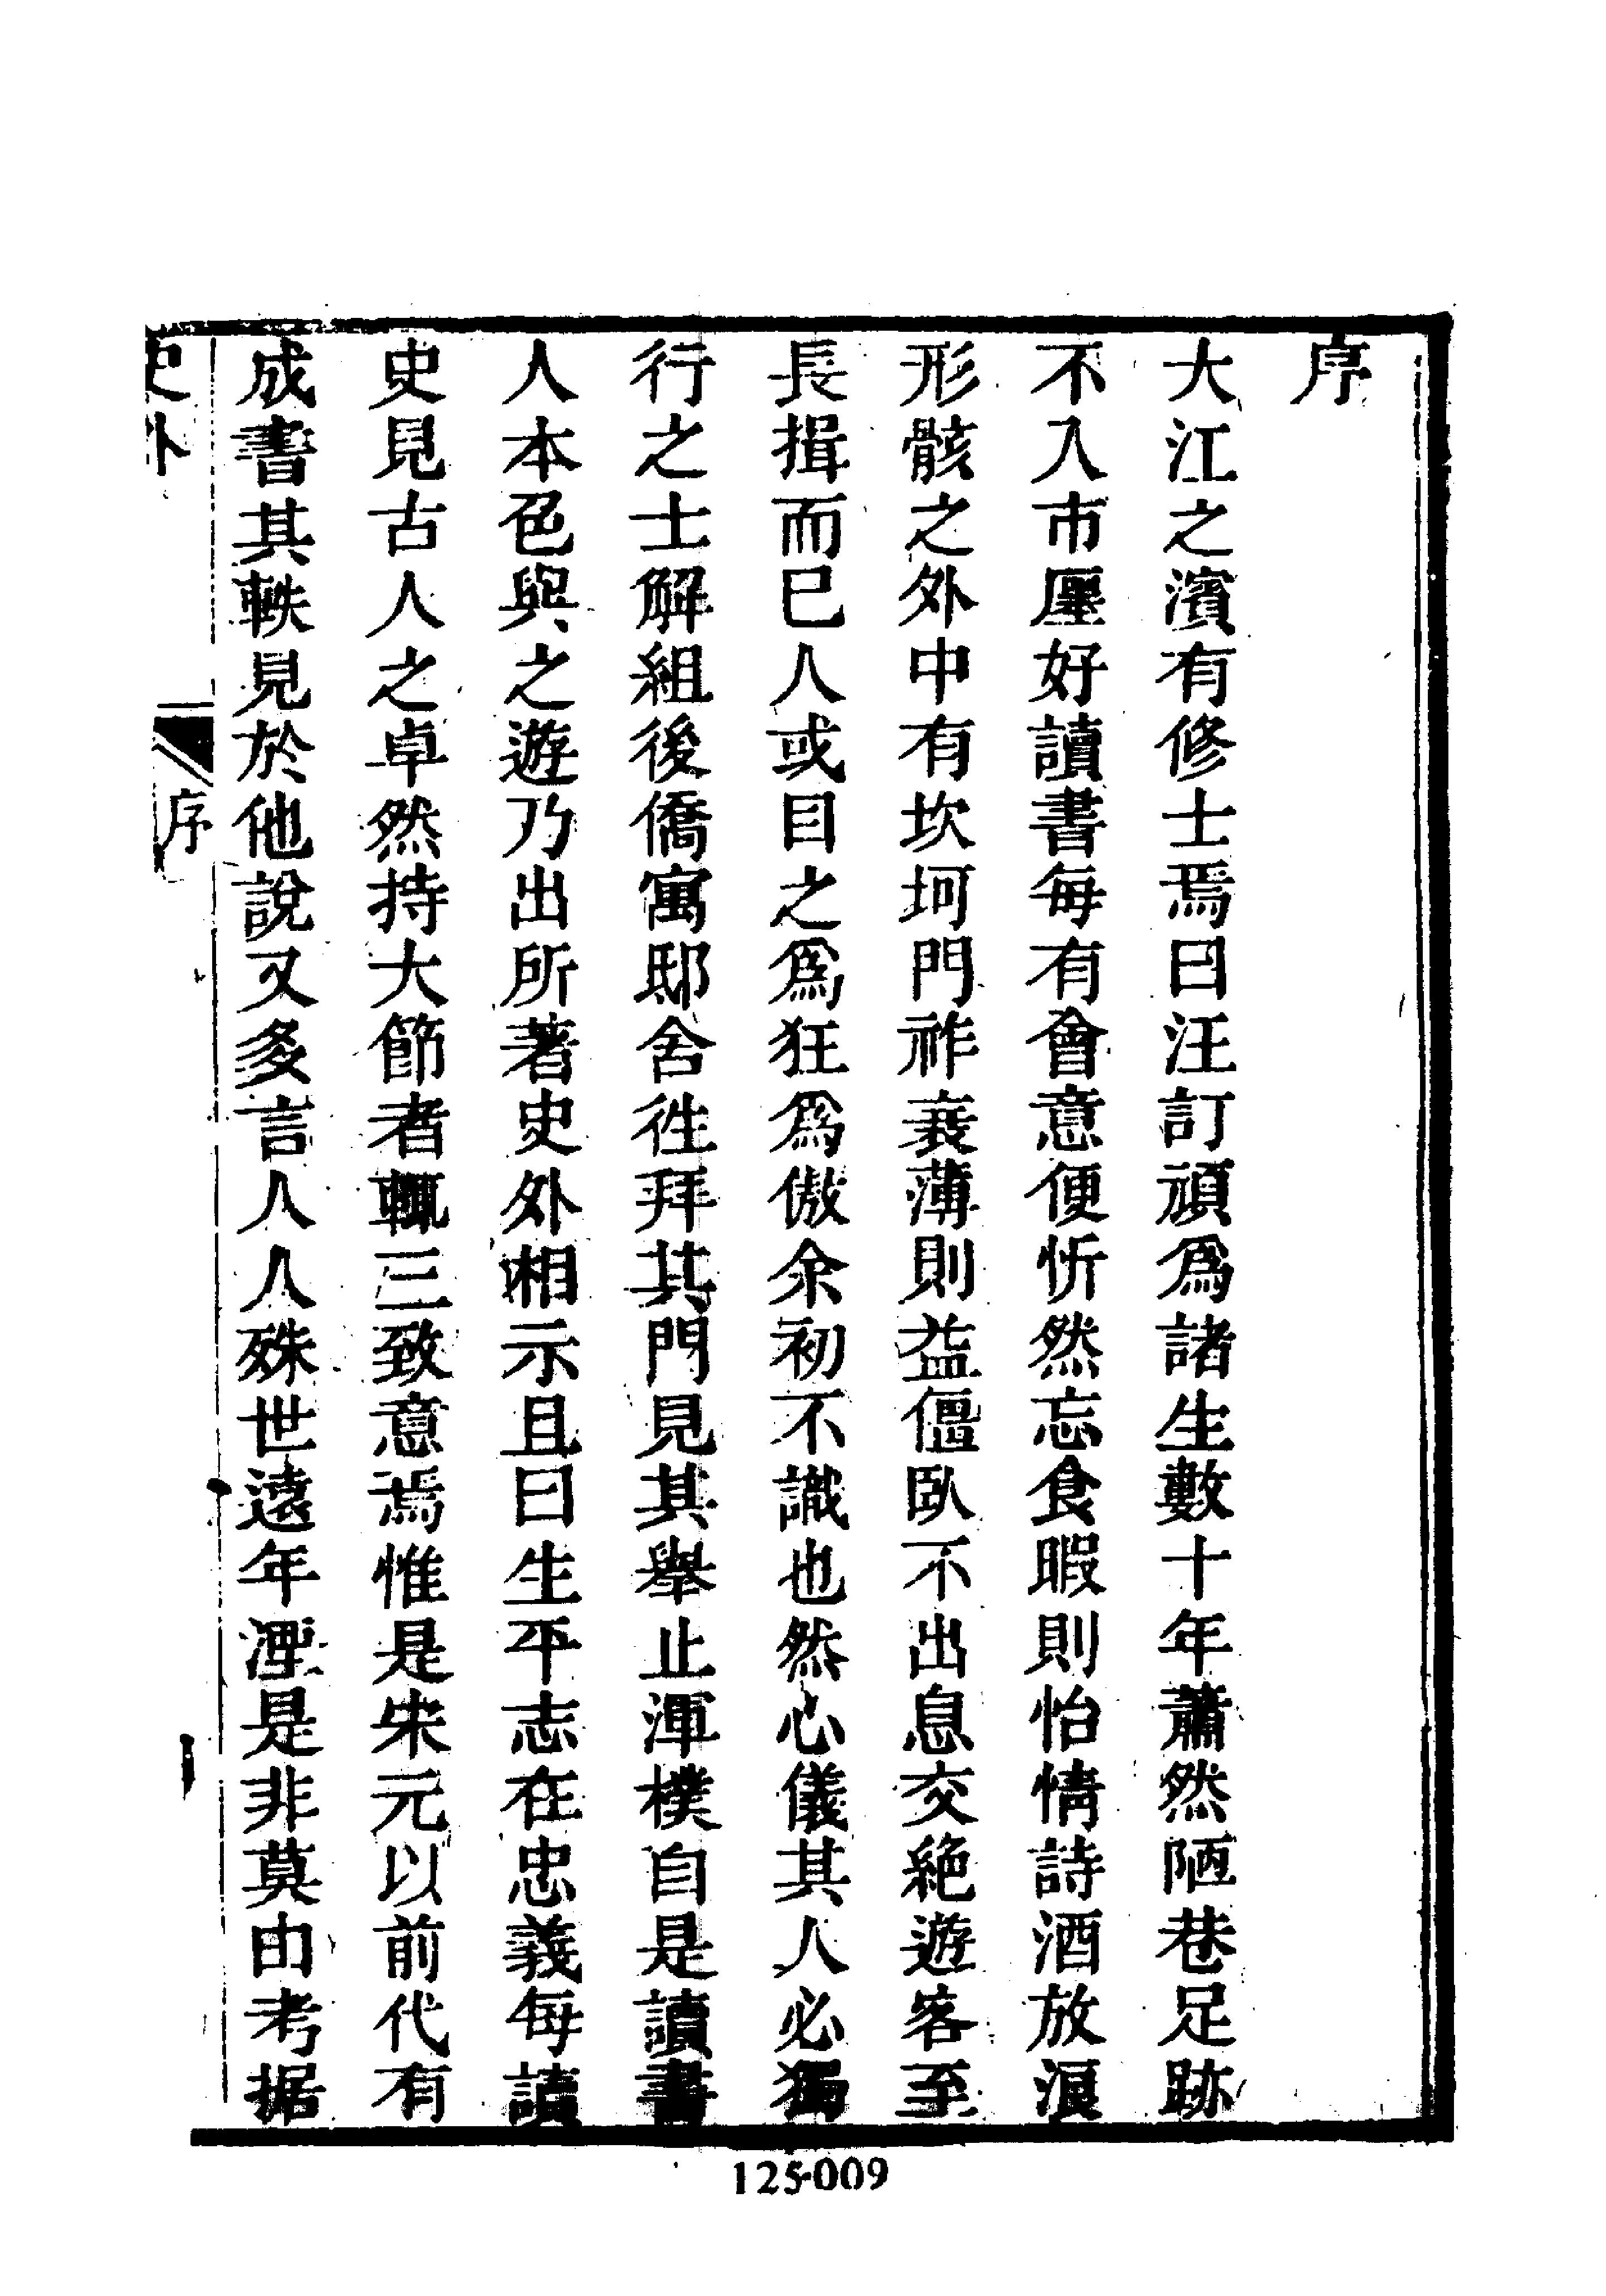 序
大江之濱有修士焉曰汪訂頑爲諸生數十年蕭然陋巷足跡
不入市廛好讀書每有會意便忻然忘食暇則怡情詩酒放浪
形骸之外中有坎坷門祚衰薄則益僵臥不出息交絶遊客至
長揖而已人或目之爲狂爲傲余初不識也然心儀其人必獨
行之士解組後僑寓邸舍徃拜其門見其舉止渾樸自是讀書
人本色與之遊乃出所著史外相示且曰生平志在忠義每讀
史見古人之卓然持大節者輒三致意焉惟是宋元以前代有
成書其軼見於他說又多言人人殊世遠年湮是非莫由考据
史外
序
一
125-009